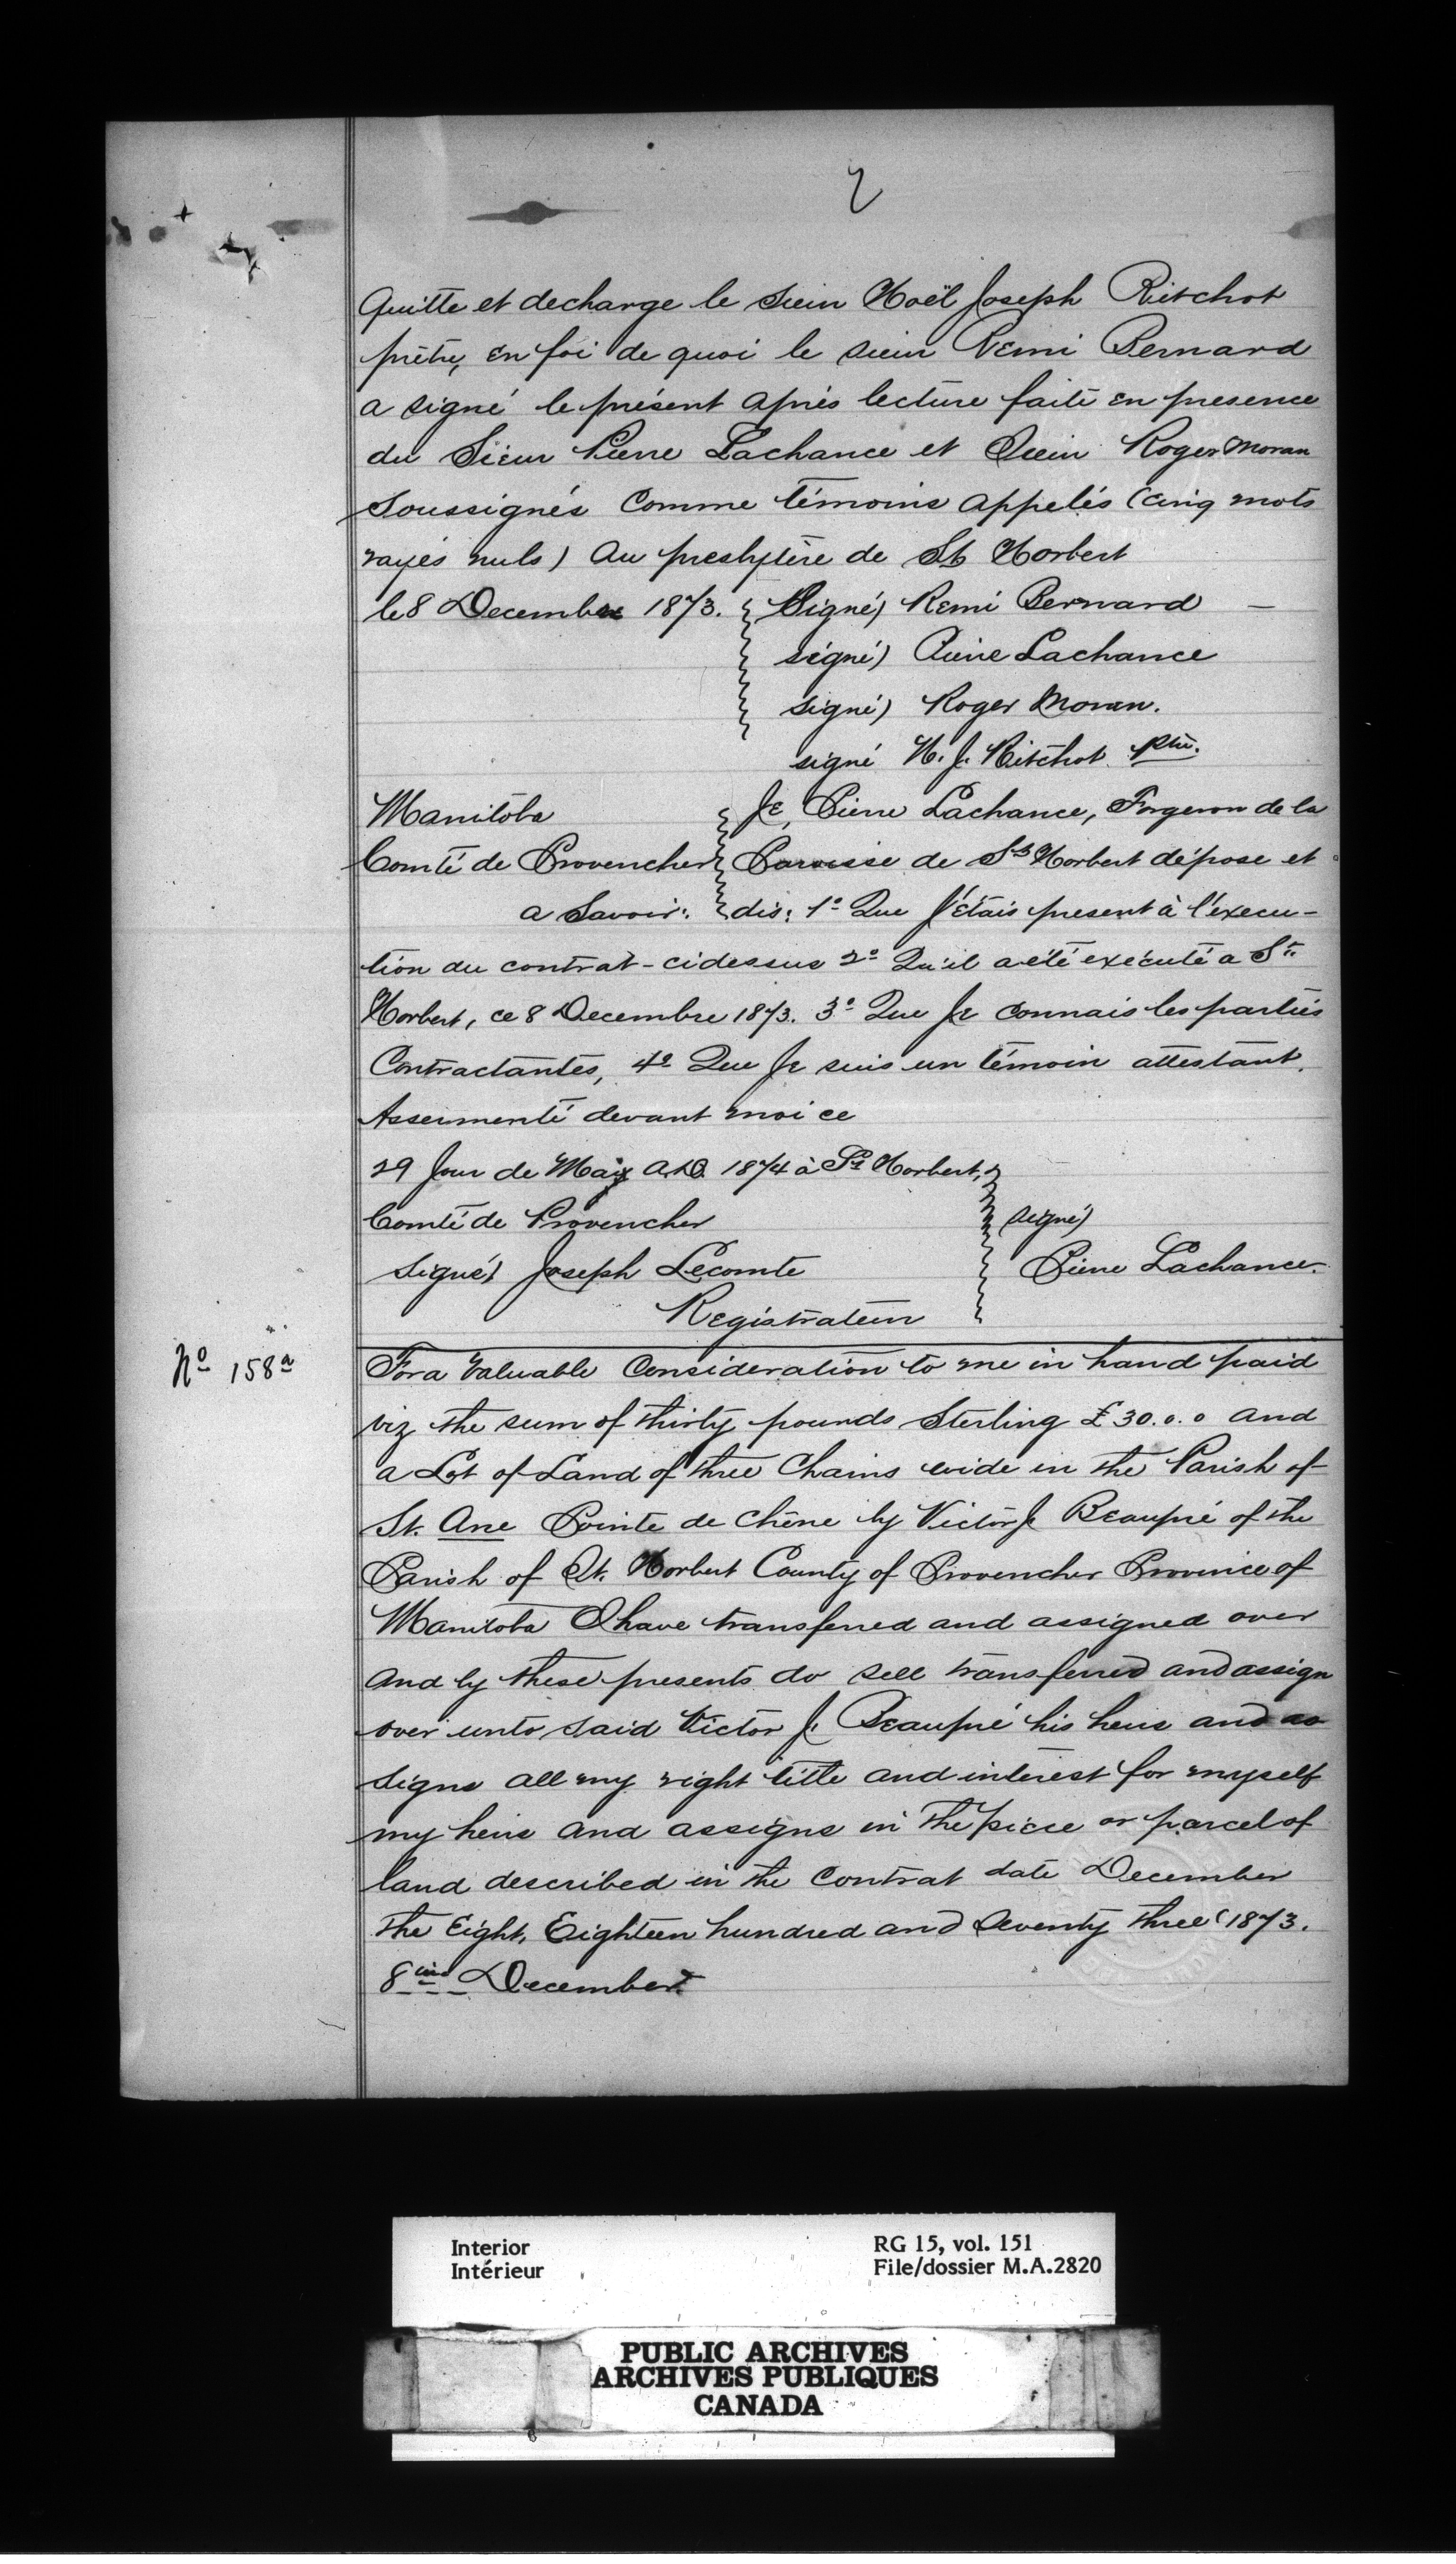 2
quitte et decharge le sieur Noël Joseph Ritchot
prêtre, en foi de quoi le sieur Remi Bernard
a signé le présent après lecture faite en presence
du Sieur Pierre Lachance et Sieur Roger Moran
soussignés comme témoins appelés (cinq mots
rayés nuls) au presbytère de St Norbert
le 8 Decembre 1873. Signé) Remi Bernard —
signé) Pierre Lachance
signé) Roger Moran.
signé N. J. Ritchot Ptre.
Manitoba Je, Pierre Lachance, Forgeron de la
Comté de Provencher Paroisse de St Norbert dépose et
a Savoir: dis: 1o Que J'étais present à l'execu-
tion du contrat-cidessus 2o Qu'il a été exécuté a St.
Norbert, ce 8 Decembre 1873. 3o Que Je connais les parties
Contractantes, 4o Que Je suis un témoin attestant.
Assermenté devant moi ce
29 Jour de Mai A.D. 1874 à St Norbert,
Comté de Provencher signé)
signé) Joseph Lecomte Pierre Lachance.
Registrateur
No 158a
For a Valuable Consideration to me in hand paid
viz the sum of thirty pounds Sterling £30.0.0 and
a Lot of Land of three Chains wide in the Parish of
St. Ane Pointe de Chêne by Victor J. Beaupré of the
Parish of St. Norbert County of Provencher Province of
Manitoba I have transferred and assigned over
and by these presents do sell transferred and assign
over unto said Victor J. Beaupré his heirs and as
signs all my right title and interest for myself
my heirs and assigns in the piece or parcel of
land described in the contrat date December
the Eight, Eighteen hundred and Seventy three (1873.
8ime December.
Interior
Intérieur
RG 15, vol. 151
File/dossier M.A.2820
PUBLIC ARCHIVES
ARCHIVES PUBLIQUES
CANADA